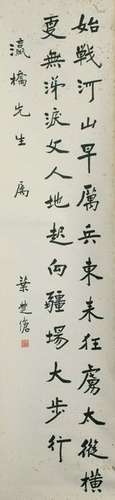 始戰河山早厲兵東來狂虜太縱橫
更無涕淚女人地起向疆場大步行
瀛橋先生 屬
葉楚傖